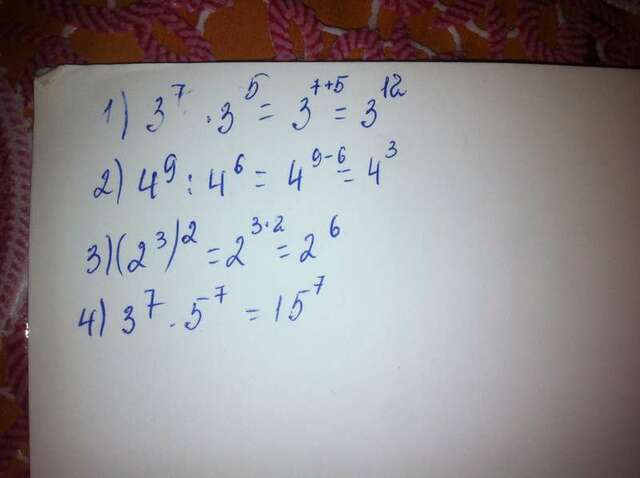 1) 3⁷ · 3⁵ = 3⁷⁺⁵ = 3¹²
2) 4⁹ : 4⁶ = 4⁹⁻⁶ = 4³
3) (2³)² = 2³·² = 2⁶
4) 3⁷ · 5⁷ = 15⁷